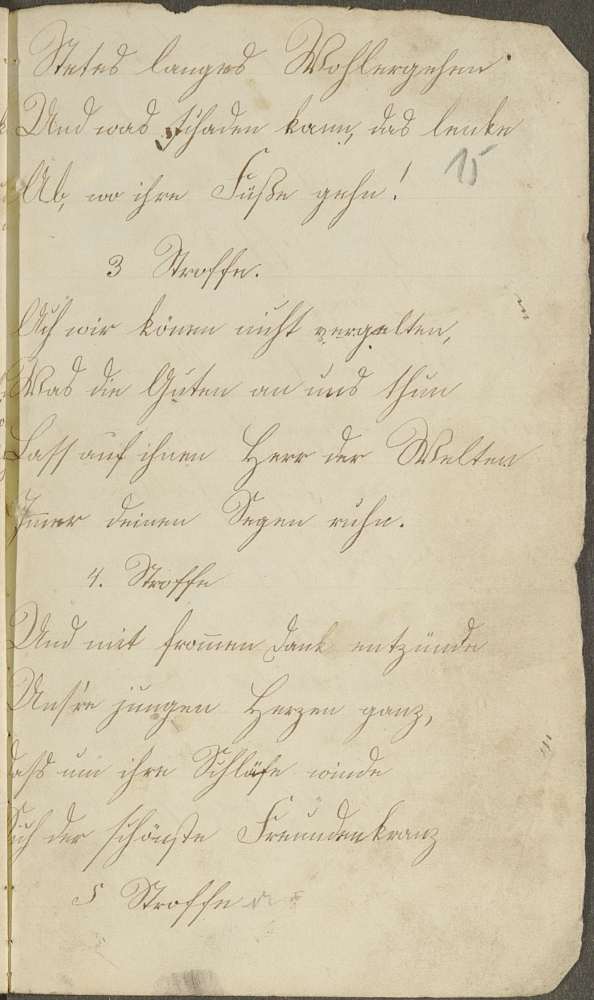 Stetes langes Wohlergehen
Und was schaden kann, das lenke
Ab, wo ihre Füße gehn!
15
3 Stroffe.
Ach wir könen nicht vergelten,
Was die Guten an uns thun
Lass auf ihnen Herr der Welten
Immer deinen Segen ruhn.
4. Stroffe
Und mit from̅en Dank entzünde
Uns're jungen Herzen ganz,
dass um ihre Schläfe winde
Sich der schönste Freundenkranz
5 Stroffe